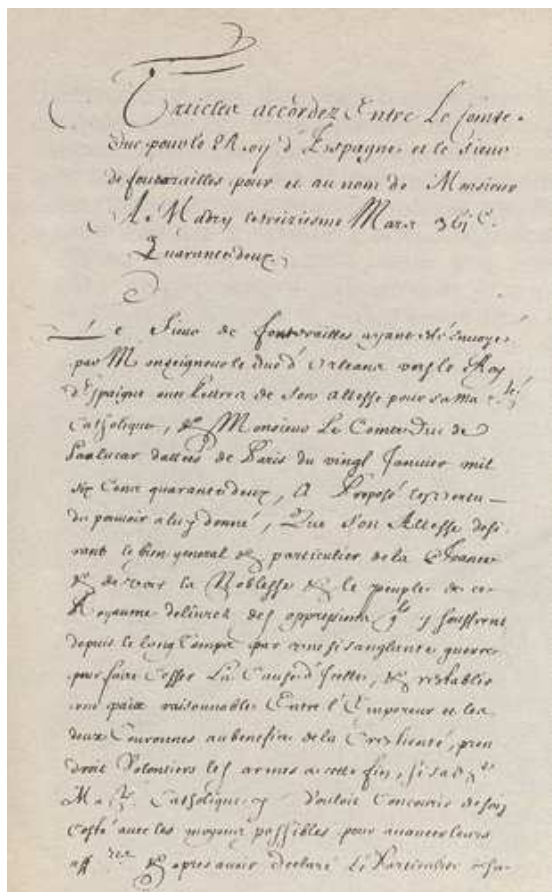 Articles accordez Entre Le Comte
Duc pour le Roy d'Espagne et le sieur
de fontrailles pour et au nom de Monsieur
A Madry le treiziesme Mars
Quarante deux.
Le sieur de fontrailles ayant esté Enuoyé
par Monseigneur le duc d'Orleans vers le Roy
d'Espaigne auec Lettres de son Altesse pour sa Ma.té
Catholique, & Monsieur Le Comte Duc de
Sanlucar dattées de Paris du vingt Januier mil
six Cens quarante deux, A Proposé en vertu
du pouuoir a luy donné, Que Son Altesse desi
rant le bien general & particulier de la France
& de voir la Noblesse & le peuple de ce
Royaume deliurez des oppressions qls y souffrent
depuis le long temps par vne si sanglante guerre
pour faire Cesser La Cause d'Icelle, & restablir
vne paix raisonnable Entre l'Empereur et les
deux Couronnes au benefice de la Crestienté, pren
droit Volontiers les armes a cette fin, si sa
Ma.té Catholique y Vouloit Concourir de son
costé auec les moyens possibles pour auancer leurs
aff.res & apres auoir declaré le Particulier